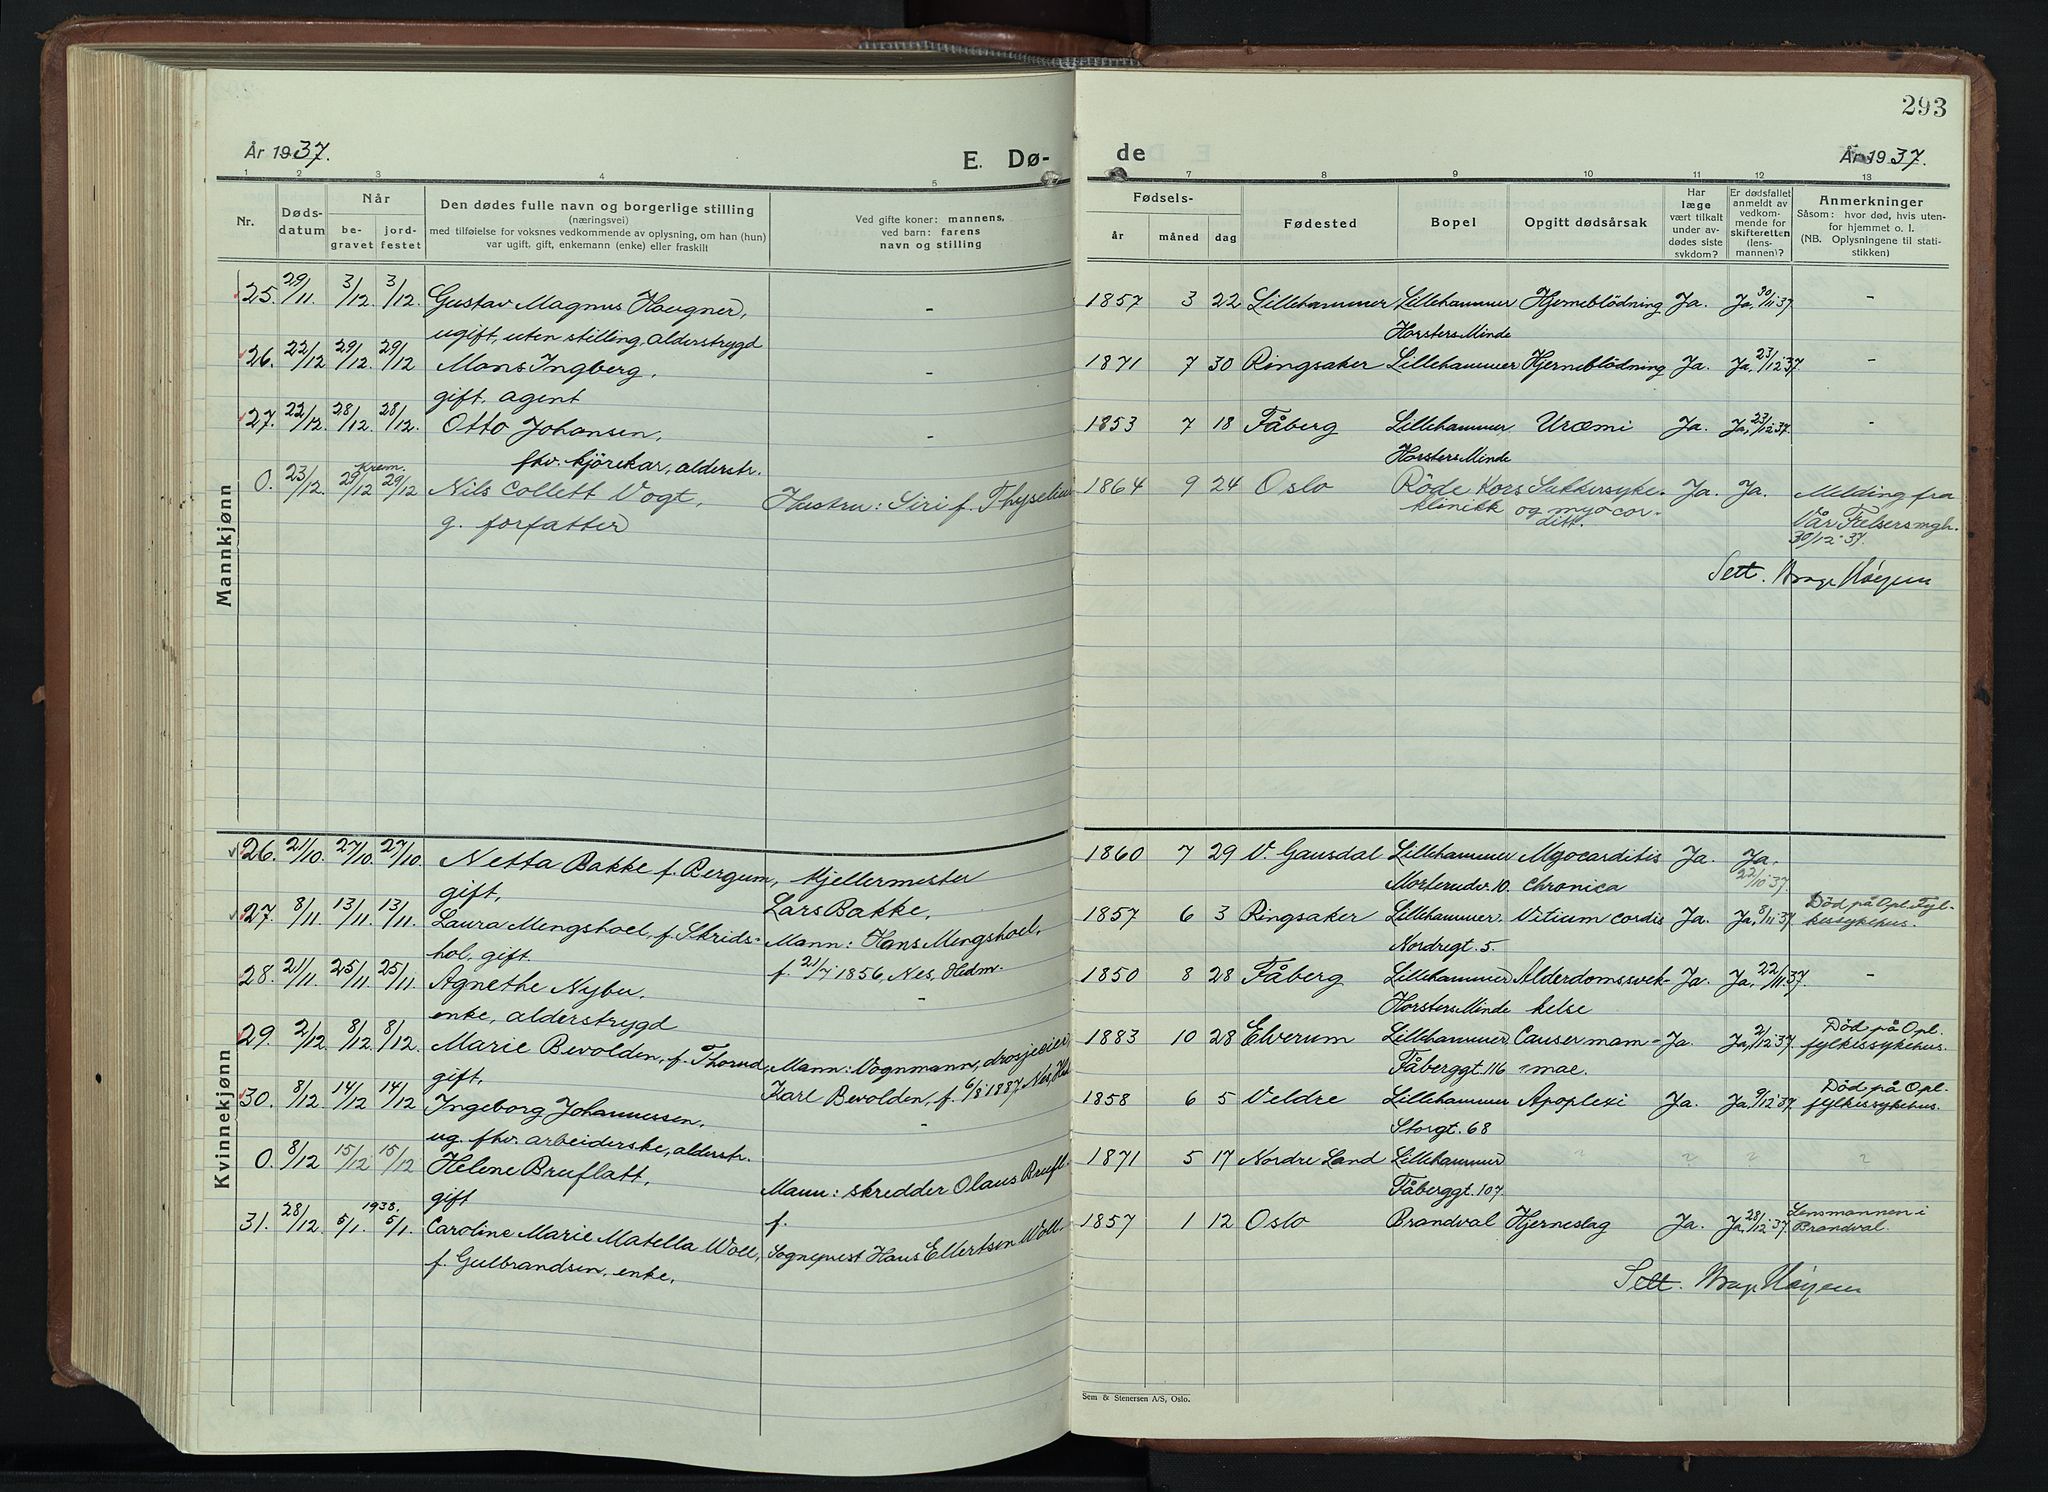 293
År 1937.
E. Dø-
de
År 1937.
1 2 3 4 5 7 8 9 10 11 12 13
Nr.
Døds-
datum
Når
be-
gravet
jord-
festet
Den dødes fulle navn og borgerlige stilling
(næringsvei)
med tilføielse for voksnes vedkommende av oplysning, om han (hun)
var ugift, gift, enkemann (enke) eller fraskilt
Ved gifte koner: mannens,
ved barn: farens
navn og stilling
Fødsels-
år måned dag
Fødested
Bopel
Opgitt dødsårsak
Har
læge
vært tilkalt
under av-
dødes siste
sykdom?
Er dødsfallet
anmeldt av
vedkom-
mende for
skifteretten
(lens-
mannen)?
Anmerkninger
Såsom: hvor død, hvis uten-
for hjemmet o. l.
(NB. Oplysningene til stati-
stikken)
Mannkjønn
25. 29/11. 3/12. 3/12. Gustav Magnus Haugner, - 1857 3 22 Lillehammer Lillehammer Hjerneblödning Ja. Ja, 30/11 37 -
ugift, uten stilling, alderstrygd Horsters Minde
26. 22/12 29/12. 29/12 Mons Ingberg, - 1871 7 30 Ringsaker Lillehammer Hjerneblödning Ja. Ja, 23/12 37 -
gift, agent
27. 22/12. 28/12. 28/12. Otto Johansen, - 1853 7 18 Fåberg Lillehammer Uræmi Ja. Ja, 23/12 37. -
fhv. kjörekar, alderstr. Horsters Minde
Krem.
0. 23/12. 29/12 29/12 Nils Collett Vogt, Hustru: Siri f. Thyselius 1864 9 24 Oslo Röde Kors Sukkersyke Ja. Ja. Melding fra
g. forfatter klinikk og myocar- Vår Frelsers mgh.
ditt. 30/12-37.
Sett. Høyem
Kvinnekjønn
26. 21/10. 27/10. 27/10. Netta Bakke f. Bergum, Hjellermester 1860 7 29 V. Gausdal Lillehammer Myocarditis Ja. Ja.
gift, Lars Bakke, Morterudv. 10. chronica 22/10 37.
27. 8/11. 13/11. 13/11. Laura Mengshoel, f. Skrids- Mann: Hans Mengshoel, 1857 6 3 Ringsaker Lillehammer. Vitium cordis Ja. Ja, 8/11 37. Död på Opl. Fyl-
kessykehus.
hol, gift. f. 21/7 1856, Nes, Hedm. Nordregt. 5.
28. 21/11. 25/11. 25/11. Agnethe Nybu, - 1850 8 28 Fåberg Lillehammer Alderdomssvek- Ja. Ja, 22/11 37. -
enke, alderstrygd Horsters Minde kelse
29. 2/12. 8/12. 8/12. Marie Bevolden, f. Thorud, Mann: Vognmann, drosjeeier, 1883 10 28 Elverum Lillehammer, Cancer mam- Ja. Ja, 2/12 37. Död på Opl.
fylkessykehus.
gift, Karl Bevolden, f. 6/8 1887, Nes, Fåberggt. 116 mae.
30. 8/12. 14/12 14/12 Ingeborg Johannessen, - 1858 6 5 Veldre Lillehammer Apoplexi Ja. Ja, 9/12 37. Död på Opl.
fylkessykehus.
ug. fhv. arbeiderske, alderstr. Storgt. 68
0. 8/12 15/12 15/12 Helene Bruflatt, Mann: skredder Olaus Brufl. 1871 5 17 Nordre Land Lillehammer ? ? ? ?
gift f. Fåberggt. 107
1938.
31. 28/12. 5/1. 5/1. Caroline Marie Matella Woll, Sogneprest Hans Ellertsen Woll 1857 1 12 Oslo Brandval Hjerneslag Ja. Ja, 28/12 37. Lensmannen i
Brandval.
f. Gulbrandsen, enke,
Sett. Høyem
Sem & Stenersen A/S, Oslo.